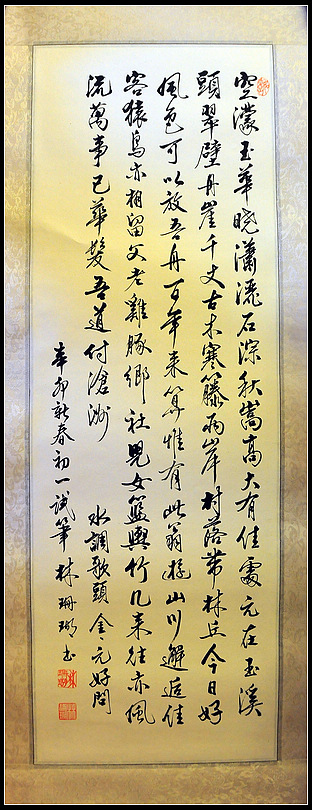 空濛玉華曉瀟灑石淙秋嵩高大有佳處元在玉溪
頭翠壁丹崖千丈古木寒籐兩岸村落帶林丘今日好
風色可以放吾舟百年來算惟有此翁遊山川邂逅佳
客猿鳥亦相留父老雞豚鄉社兒女籃輿竹几來往亦風
流萬事已華髮吾道付滄洲 水調歌頭 金 元好問
辛卯新春初一試筆 林珊瑚書